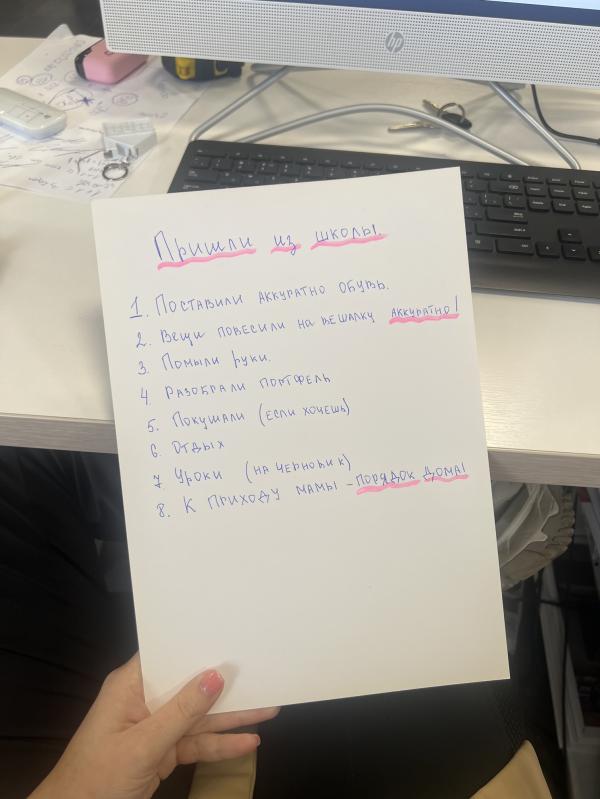 hp
Пришли из школы.
1. Поставили аккуратно обувь.
2. Вещи повесили на вешалку аккуратно!
3. Помыли руки.
4. Разобрали портфель
5. Покушали (если хочешь)
6. Отдых
7. Уроки (на черновик)
8. К приходу мамы - порядок дома!